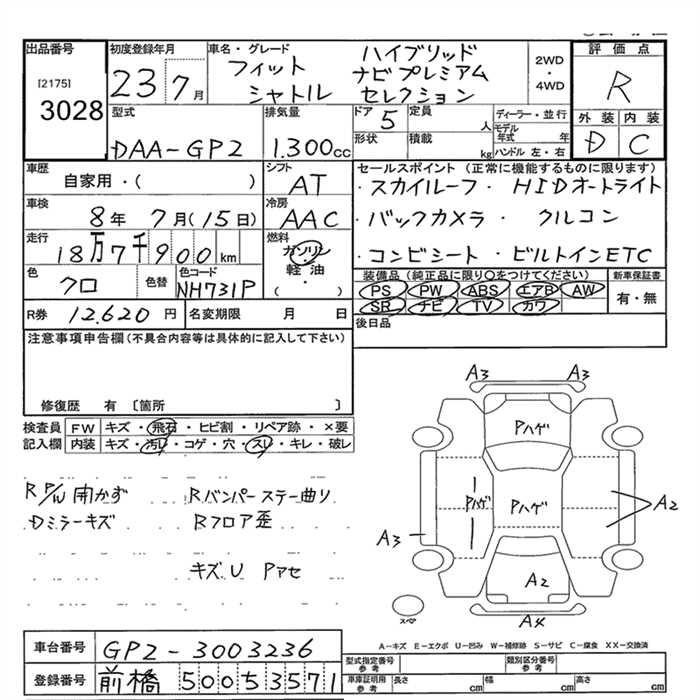 出品番号
[2175]
3028
初度登録年月
23 7月
車名・グレード
フィット
シャトル
ハイブリッド
ナビプレミアム
セレクション
2WD
・
4WD
評価点
R
外装 内装
D C
型式
DAA-GP2
排気量
1.300cc
ドア 5
定員 人
形状
積載 kg
ディーラー・並行
モデル年式 年
ハンドル 左・右
車歴
自家用・( )
シフト
AT
車検
8年 7月(15日)
冷房
AAC
走行
18万7千900km
燃料
ガソリン
軽油
( )
色
クロ
色替
色コード
NH731P
R券 12.620円
名変期限 月 日
セールスポイント(正常に機能するものに限ります)
・スカイルーフ ・HIDオートライト
・バックカメラ ・クルコン
・コンビシート ・ビルトインETC
装備品(純正品に限り○をつけてください)
PS PW ABS エアB AW
SR ナビ TV カワ
新車保証書
有・無
後日品
注意事項申告欄(不具合内容等は具体的に記入して下さい)
修復歴 有 〔箇所 〕
検査員
記入欄
FW キズ・飛石・ヒビ割・リペア跡・×要
内装 キズ・汚れ・コゲ・穴・スレ・キレ・破レ
R P/W 開かず
Dミラーキズ
Rバンパーステー曲り
Rフロア歪
キズU Pアセ
A3 A3
Pハゲ
Pハゲ Pハゲ
A2
A3
A2
A4
スペア
A-キズ E-エクボ U-凹み W-補修跡 S-サビ C-腐食 XX-交換済
車台番号 GP2-3003236
登録番号 前橋 500 53571
型式指定番号
参考
類別区分番号
参考
車庫証明用
参考
長さ cm
幅 cm
高さ cm